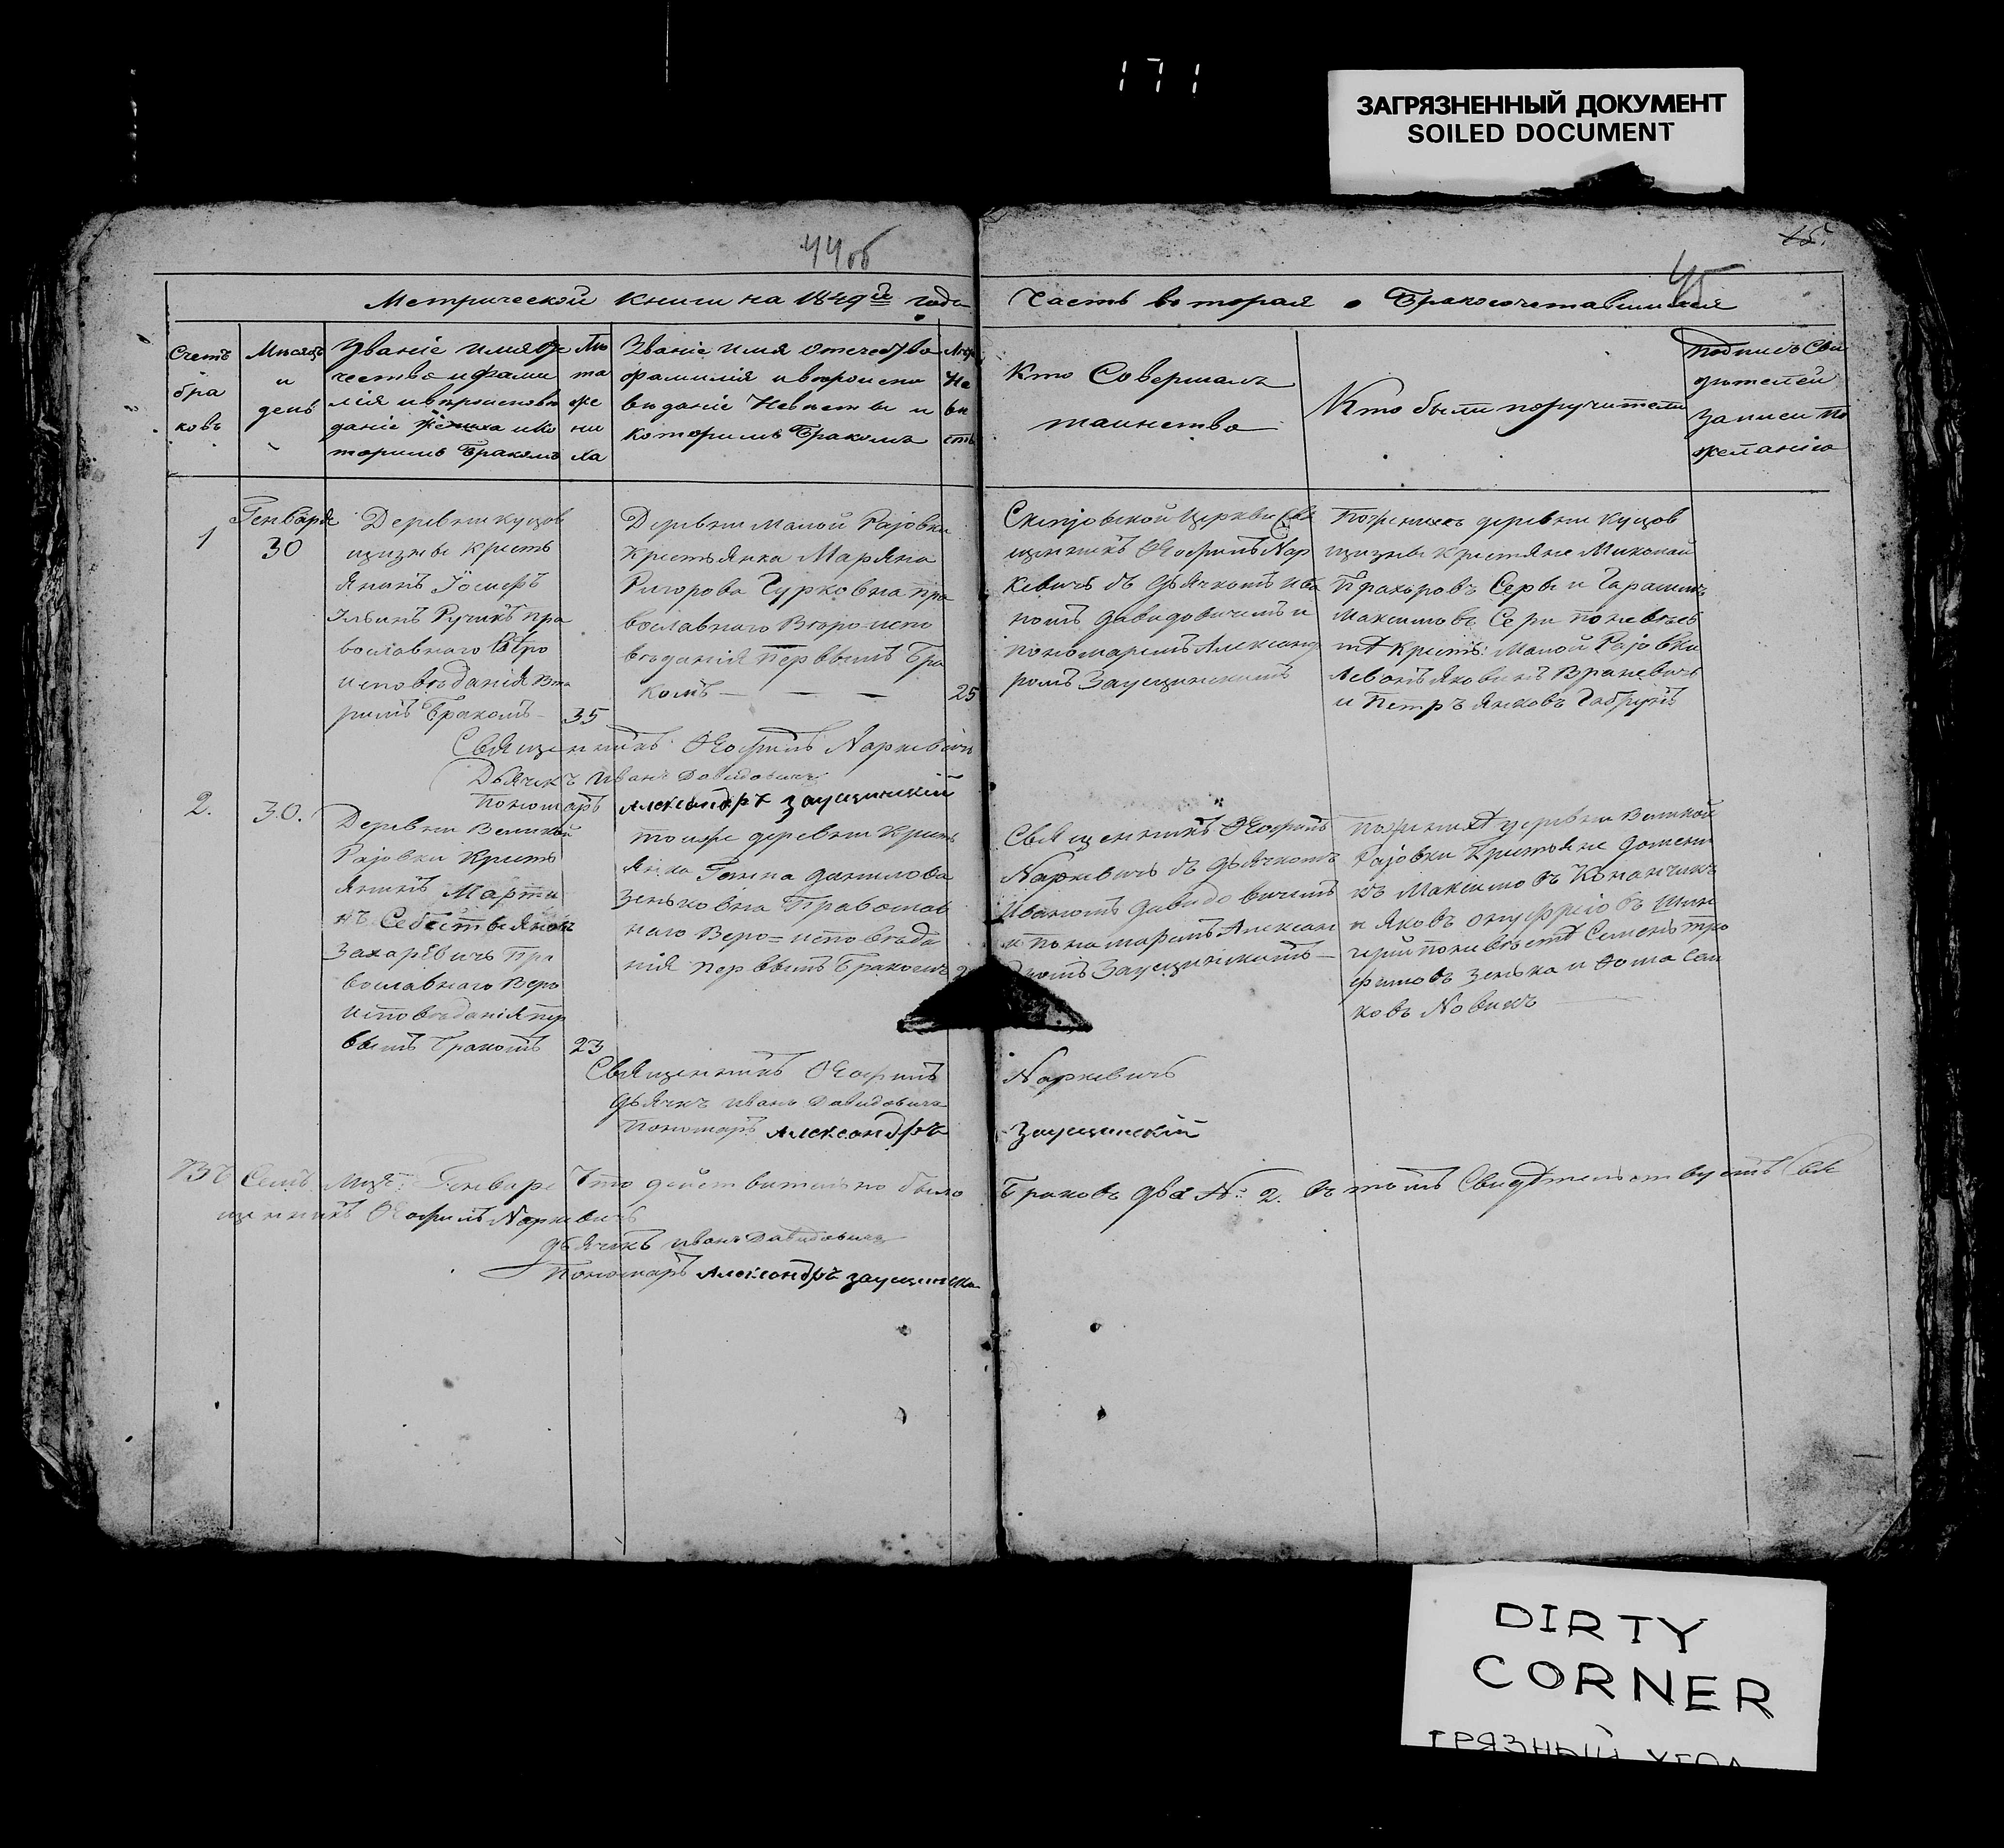 171
ЗАГРЯЗНЕННЫЙ ДОКУМЕНТ
SOILED DOCUMENT
44об
15.
45
Метрической книги на 1849й года
Часть вторая о Бракосочетавшихся
Счетъ
бра
ковъ
Мѣсяцъ
и
день
Званіе имя Оте
чество и фами
лія и вѣроисповѣ
даніе жениха и ко
торымъ Бракомъ
Лѣ
та
же
ни
ха
Званіе имя Отечество
фамилія и вѣроиспо
вѣданіе Невѣсты и
которымъ Бракомъ
Лѣта
Не
вѣ
сты
Кто Совершалъ
таинство
Кто были поручители
Подпись Сви
дѣтелей
записи по
желанію
1
Генваря
30
Деревни Куцов
щизны Кресть
янинъ Іосифъ
Ильинъ Ручикъ пра
вославнаго Вѣро
исповѣданія вто
рымъ бракомъ
35
Деревни Малой Раіовки
Крестьянка Маряна
Ригорова Гурковна пра
вославнаго Вѣроиспо
вѣданія Первымъ Бра
комъ — — —
25
Церкви Свя
щенникъ Ѳеофилъ Нар
кевичъ съ Дьячкомъ Ива
номъ Давидовичемъ и
пономаремъ Александ
ромъ Заусцинскимъ
По женихѣ деревни Куцов
щизны крестьяне Миколай
Прахоровъ Серы и Гарасимъ
Максимовъ Серы по невѣс
тѣ Крест: Малой Раіовки
Левонъ Яковинъ Враневичъ
и Петръ Янковъ Габрунъ
Священникъ Ѳеофилъ Наркевичъ
Дьячекъ Иванъ Давидовичъ
Пономаръ Александръ Заусцинскій
2.
30.
Деревни Великой
Раіовки Кресть
янинъ Марти
нъ Себестьяновъ
Захаревичъ Пра
вославнаго Вѣро
исповѣданія пер
вымъ Бракомъ
23
тоиже деревни Кресть
янка Ганна Данилова
Зеньковна Православ
наго Веро=исповѣда
нія первымъ Бракомъ
Священникъ Ѳеофилъ
Наркевичъ съ Дьячкомъ
Иваномъ Давидовичемъ
и пономаремъ Алексан
дромъ Заусцинскимъ —
По женихѣ деревни Великой
Раіовки Крестьяне Домени
къ Максимовъ Конанчикъ
и Яковъ Онуфріовъ
по невѣстѣ Семенъ Тро
фимовъ Зенька и Ѳома Сам
ковъ Новикъ
Священникъ Ѳеофилъ Наркевичъ
Дьячекъ Иванъ Давидовичъ
Пономаръ Александръ Заусцинскій
Въ Семъ Мцѣ: Генварѣ Что дѣйствительно было Браковъ два №: 2. въ томъ Свидѣтельствуемъ Свя
щенникъ Ѳеофилъ Наркевичъ
Дьячекъ Иванъ Давидовичъ
Пономаръ Александръ Заусцинскій
DIRTY
CORNER
ГРЯЗНЫЙ УГОЛ